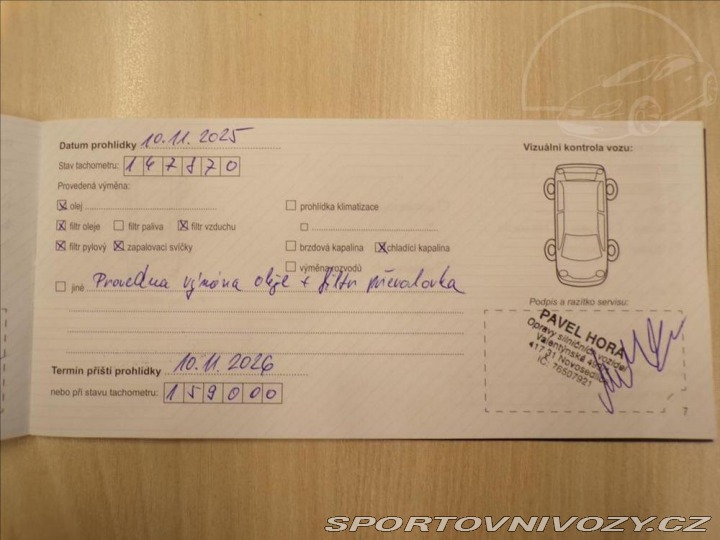 Datum prohlídky 10.11.2025
Stav tachometru: 147870
Provedená výměna:
olej
filtr oleje filtr paliva filtr vzduchu
filtr pylový zapalovací svíčky
prohlídka klimatizace
brzdová kapalina chladicí kapalina
výměna rozvodů
jiné Provedna výměna oleje + filtr převodovka
Termín příští prohlídky 10.11.2026
nebo při stavu tachometru: 159000
Vizuální kontrola vozu:
Podpis a razítko servisu:
PAVEL HORA
Opravy silničních vozidel
Valentýnská
417 31 Novosedlice
IČ: 76507921
7
SPORTOVNIVOZY.CZ